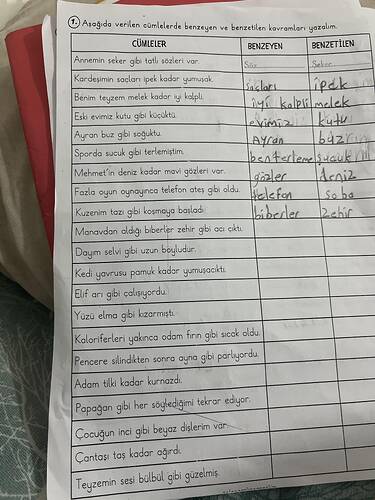 1. Aşağıda verilen cümlelerde benzeyen ve benzetilen kavramları yazalım.
CÜMLELER BENZEYEN BENZETİLEN
Annemin şeker gibi tatlı sözleri var. Söz Şeker
Kardeşimin saçları ipek kadar yumuşak. saçları ipek
Benim teyzem melek kadar iyi kalpli. iyi kalpli melek
Eski evimiz kutu gibi küçüktü. evimiz kutu
Ayran buz gibi soğuktu. Ayran buz
Sporda sucuk gibi terlemiştim. benterleme sucuk
Mehmet'in deniz kadar mavi gözleri var. gözler deniz
Fazla oyun oynayınca telefon ateş gibi oldu. telefon soba
Kuzenim tazı gibi koşmaya başladı. biberler zehir
Manavdan aldığı biberler zehir gibi acı çıktı.
Dayım selvi gibi uzun boyludur.
Kedi yavrusu pamuk kadar yumuşacıktı.
Elif arı gibi çalışıyordu.
Yüzü elma gibi kızarmıştı.
Kaloriferleri yakınca odam fırın gibi sıcak oldu.
Pencere silindikten sonra ayna gibi parlıyordu.
Adam tilki kadar kurnazdı.
Papağan gibi her söylediğimi tekrar ediyor.
Çocuğun inci gibi beyaz dişlerim var.
Çantası taş kadar ağırdı.
Teyzemin sesi bülbül gibi güzelmiş.